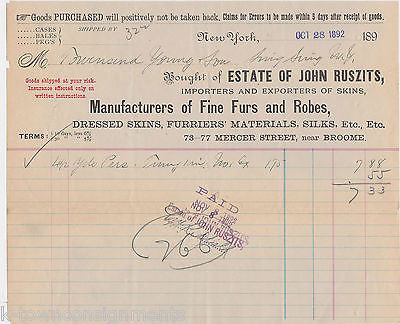 Goods PURCHASED will positively not be taken back, Claims for Errors to be made within 3 days after receipt of goods.
CASES
BALES
PKG'S
SHIPPED BY
New York, OCT 28 1892 189
M. Townsend Young & Son Sing Sing N.Y.
Bought of ESTATE OF JOHN RUSZITS,
Goods shipped at your risk.
Insurance effected only on
written instructions
IMPORTERS AND EXPORTERS OF SKINS,
Manufacturers of Fine Furs and Robes,
DRESSED SKINS, FURRIERS' MATERIALS, SILKS, Etc., Etc.
TERMS:
73-77 MERCER STREET, near BROOME.
7 88
55
7 33
PAID
NOV 1892
JOHN RUSZITS,
k-townconsignments